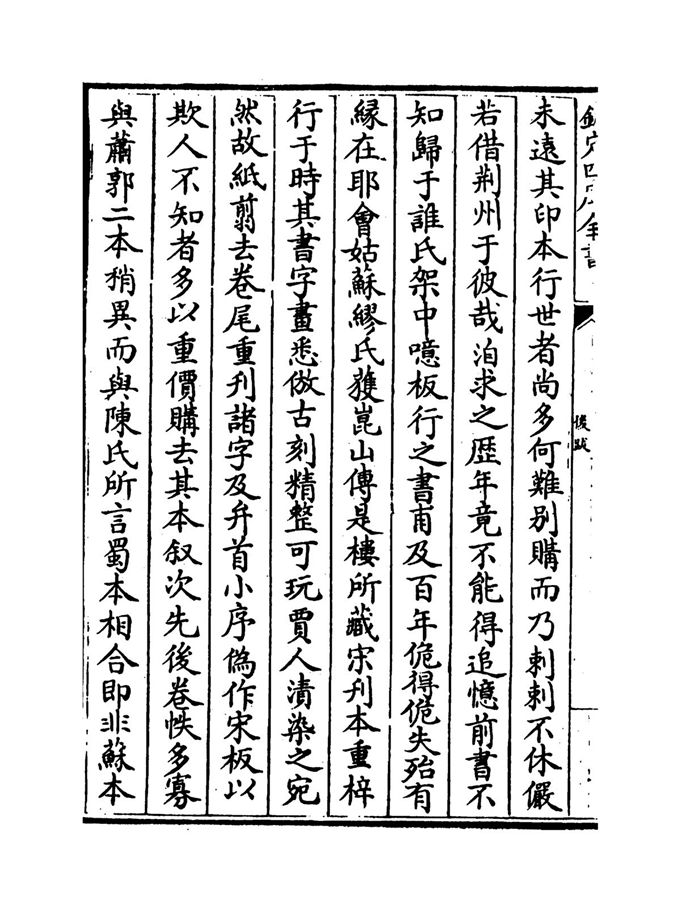 欽定四庫全書
後跋
未遠其印本行世者尚多何難别購而乃剌剌不休儼
若借荆州于彼哉洎求之歴年竟不能得追憶前書不
知歸于誰氏架中噫板行之書甫及百年佹得佹失殆有
縁在耶會姑蘇繆氏䕶崑山傳是樓所藏宋刋本重梓
行于時其書字畫悉倣古刻精整可玩賈人漬染之宛
然故紙翦去卷尾重刋諸字及弁首小序偽作宋板以
欺人不知者多以重價購去其本叙次先後卷帙多寡
與蕭郭二本稍異而與陳氏所言蜀本相合即非蘇本